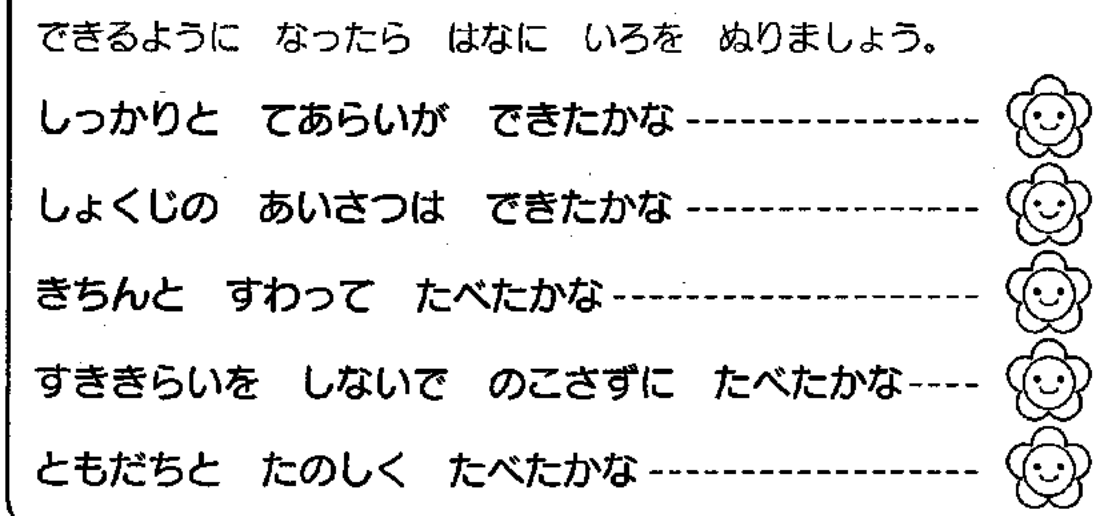 できるように なったら はなに いろを ぬりましょう。
しっかりと てあらいが できたかな
しょくじの あいさつは できたかな
きちんと すわって たべたかな
すききらいを しないで のこさずに たべたかな
ともだちと たのしく たべたかな